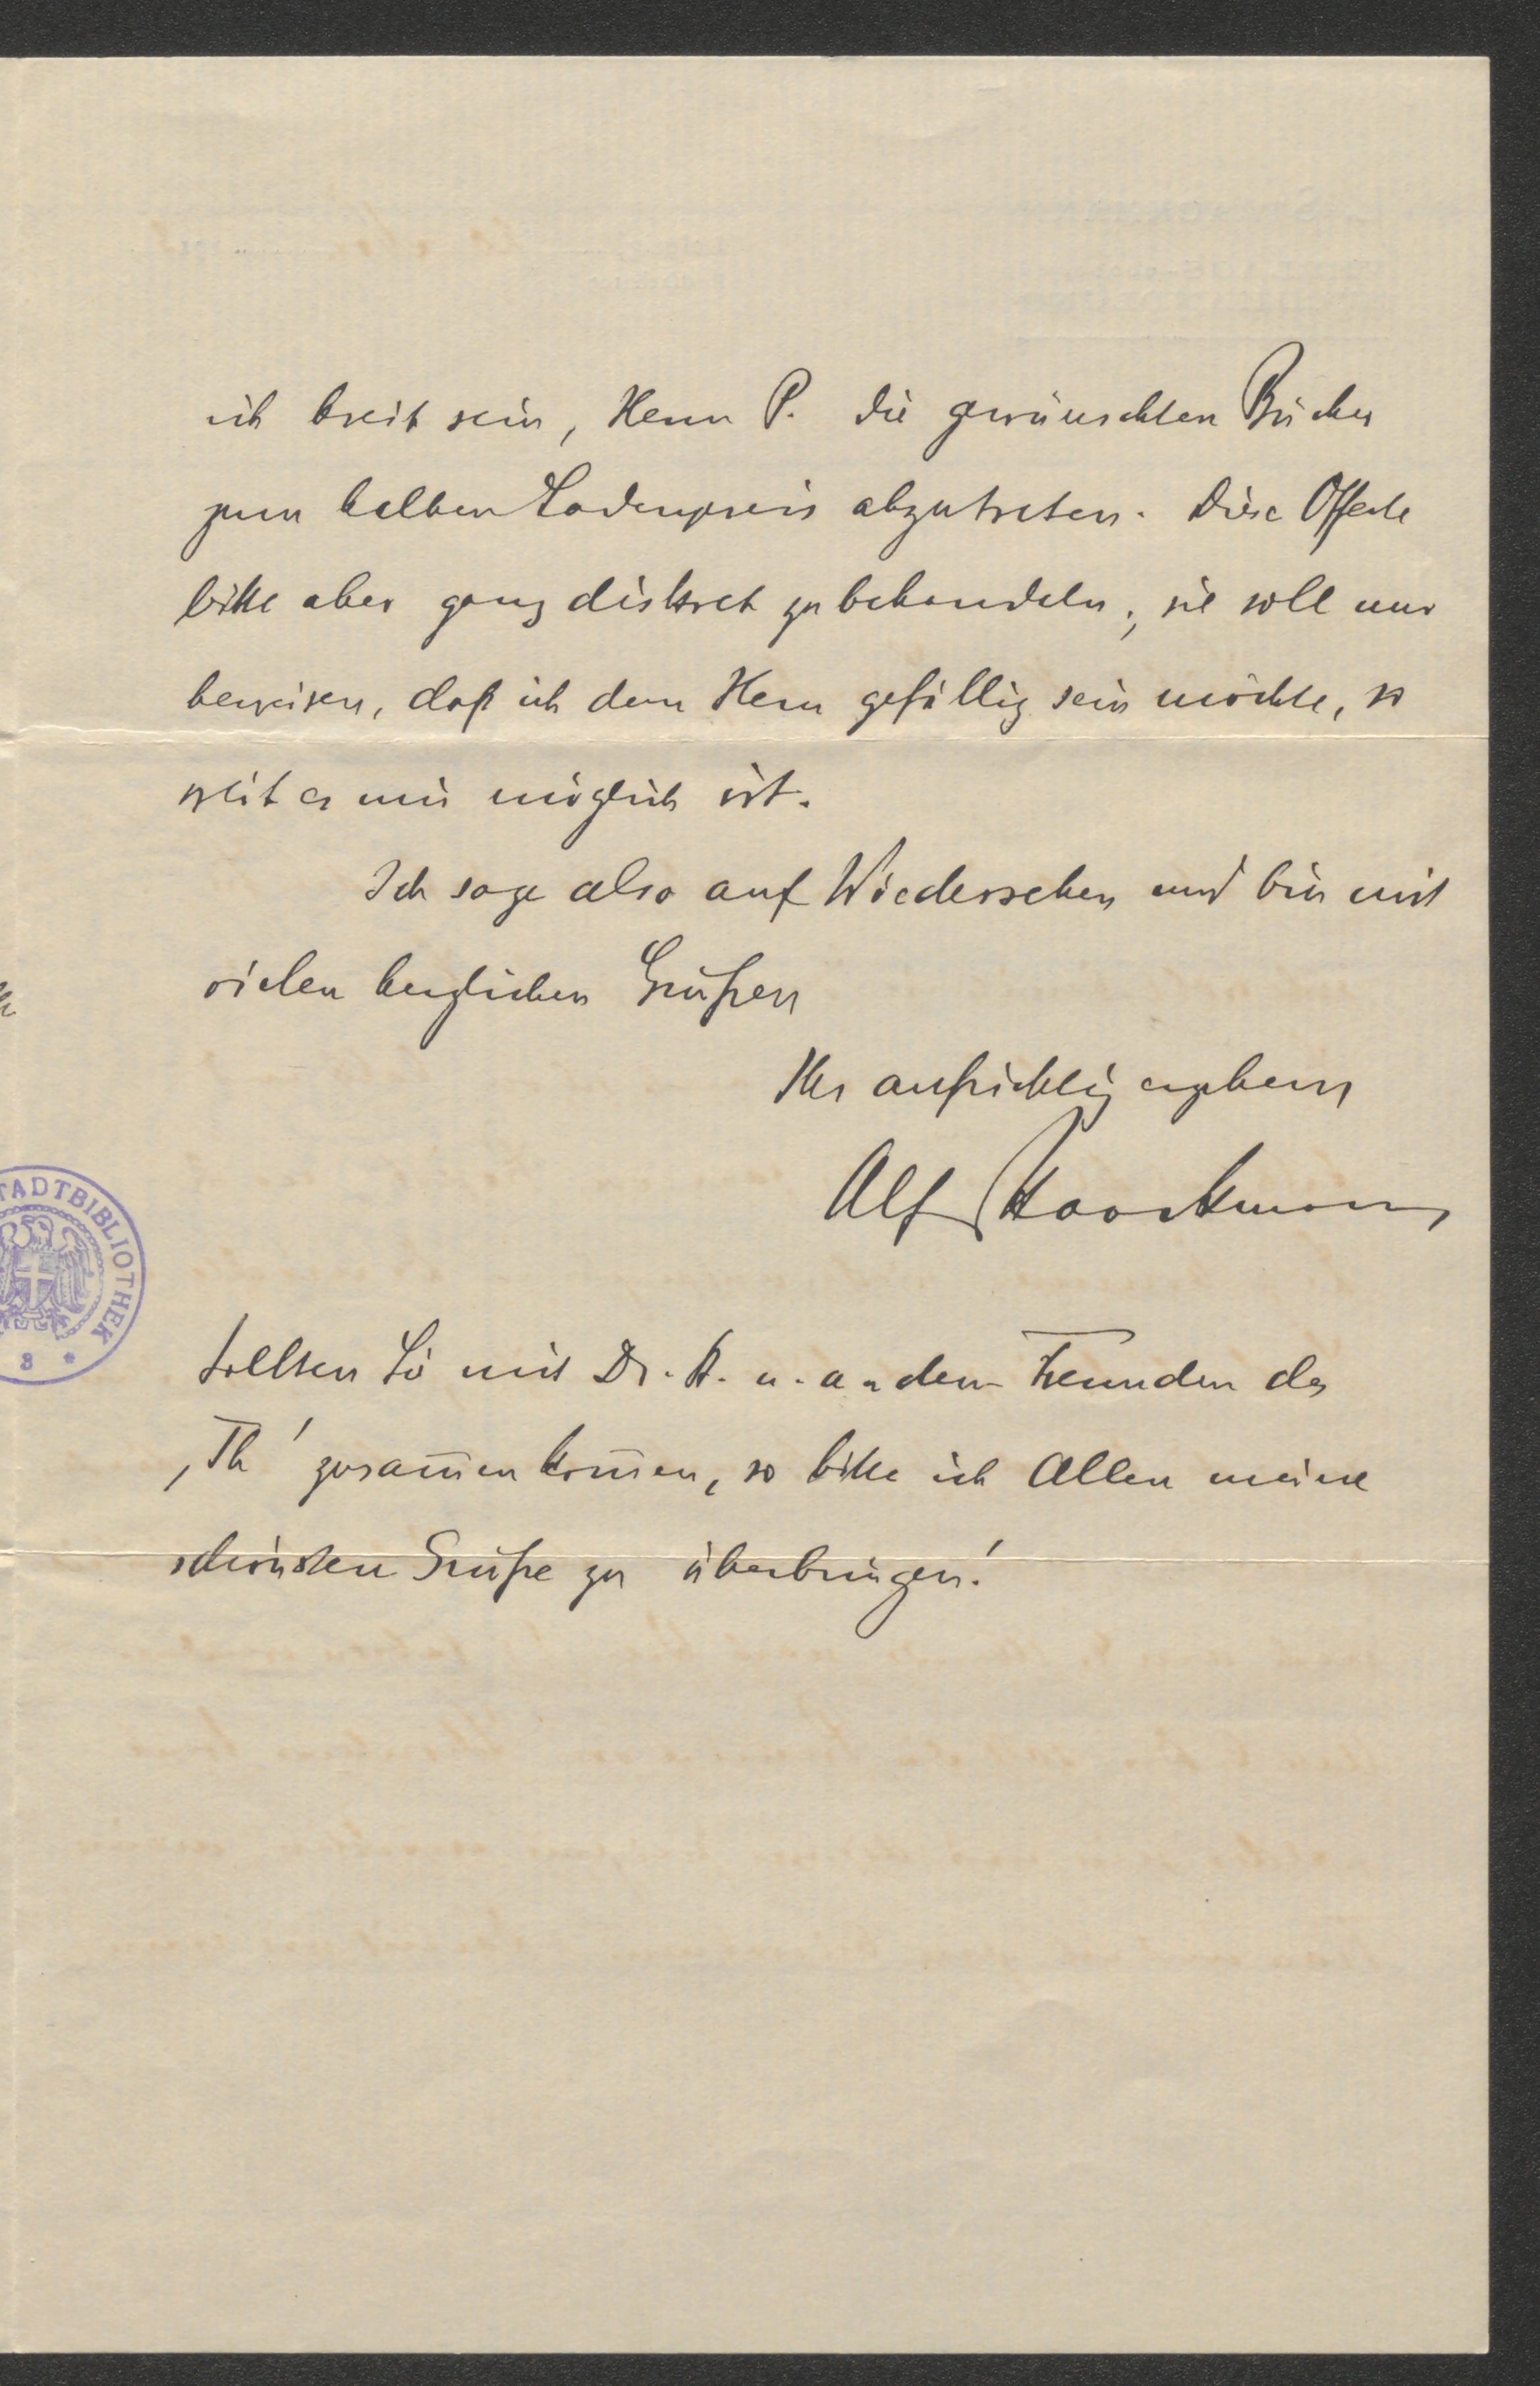 ich breit sein, Herrn P. die gewünschten Bücher
zum halben Ladenpreis abzutreten. Diese Offerte
bitte aber ganz diskret zu behandeln; sie soll nur
beweisen, daß ich dem Herrn gefällig sein möchte, so
weit es mir möglich ist.
Ich sage also auf Wiedersehen und bin mit
vielen herzlichen Grüßen
Ihr aufrichtig ergebener
Alf
Sollten Sie mit Dr. A. u. andern Freunden des
‚Th' zusam̄en kom̄en, so bitte ich Allen meine
schönsten Grüße zu überbringen!
TADTBIBLIOTHEK